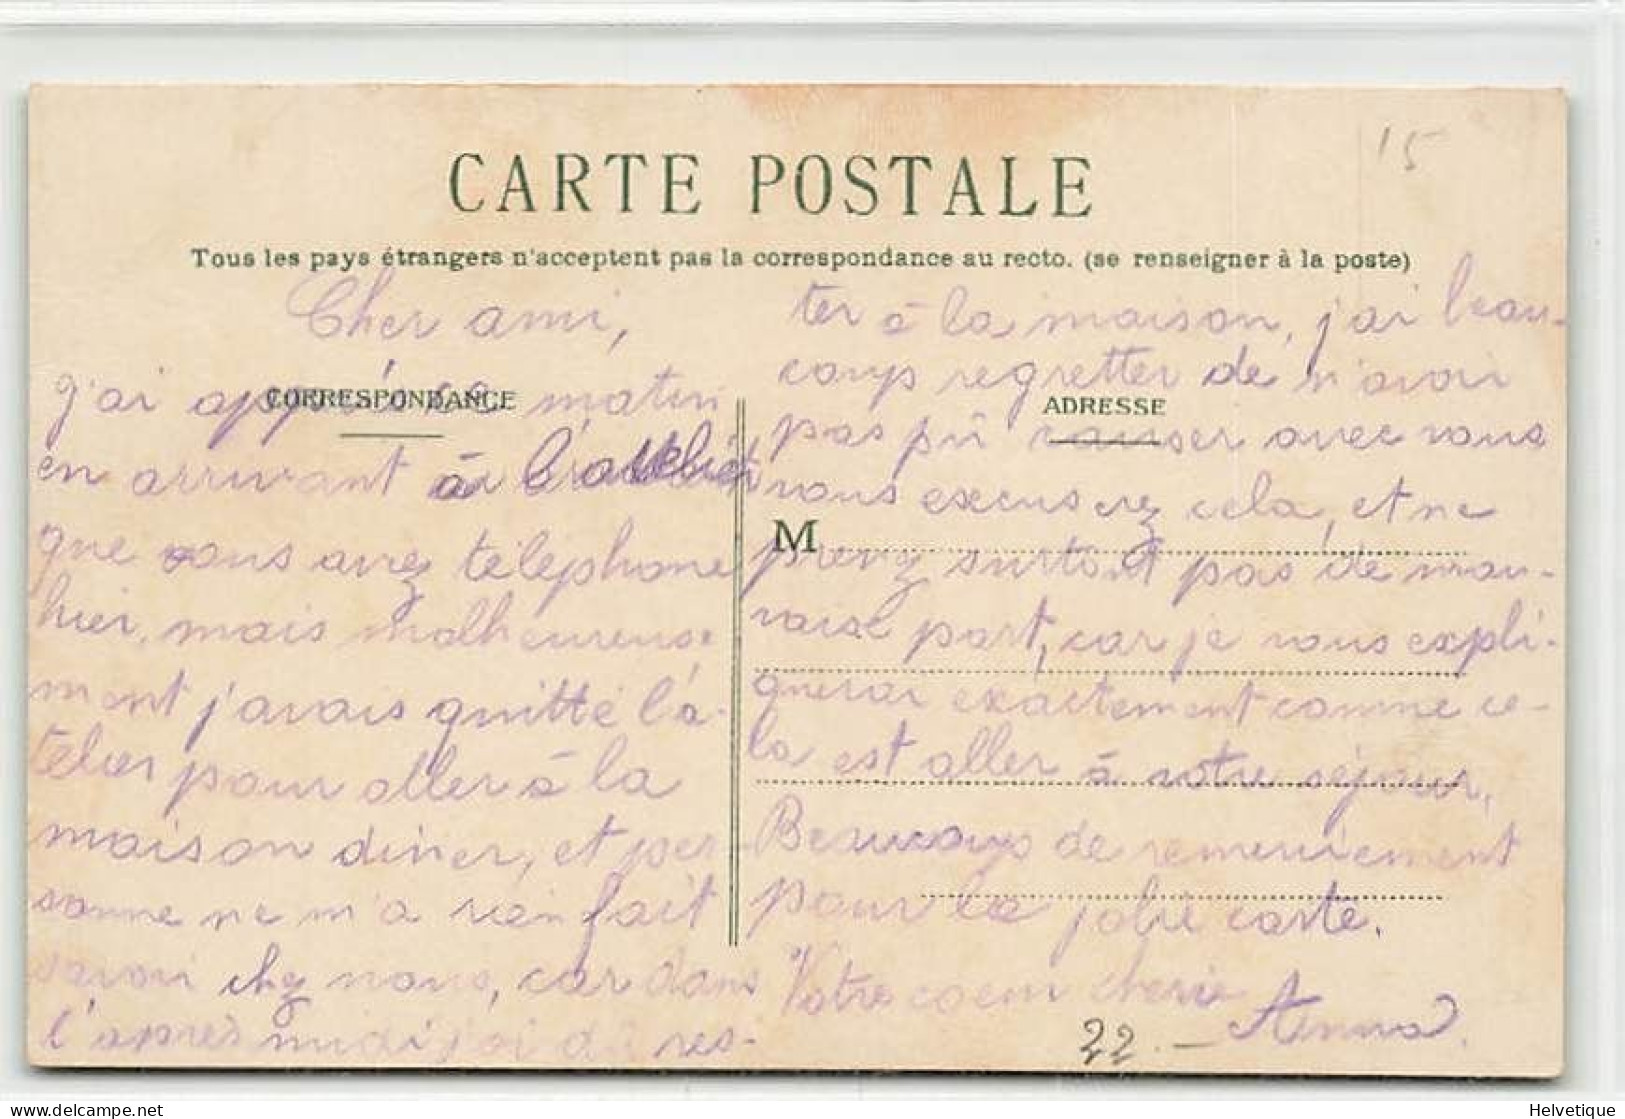 15
CARTE POSTALE
Tous les pays étrangers n'acceptent pas la correspondance au recto. (se renseigner à la poste)
CORRESPONDANCE
Cher ami,
j'ai appris ce matin
en arrivant à l'atelier
que vous avez téléphone
hier, mais malheureuse
ment j'avais quitté l'a-
telier pour aller à la
maison diner, et per-
sonne ne m'a rien fait
savoir chez nous, car dans
l'après midi j'ai dû res-
ADRESSE
M
ter à la maison, j'ai beau-
coup regretter de n'avoir
pas pû causer avec vous
vous excuserez cela, et ne
prenez surtout pas de mau-
vaise part, car je vous expli-
querai exactement comme ce-
la est aller à votre séjour.
Beaucoup de remerciement
pour la jolie carte.
Votre coeur cherie
Anna
22.-
Helvetique